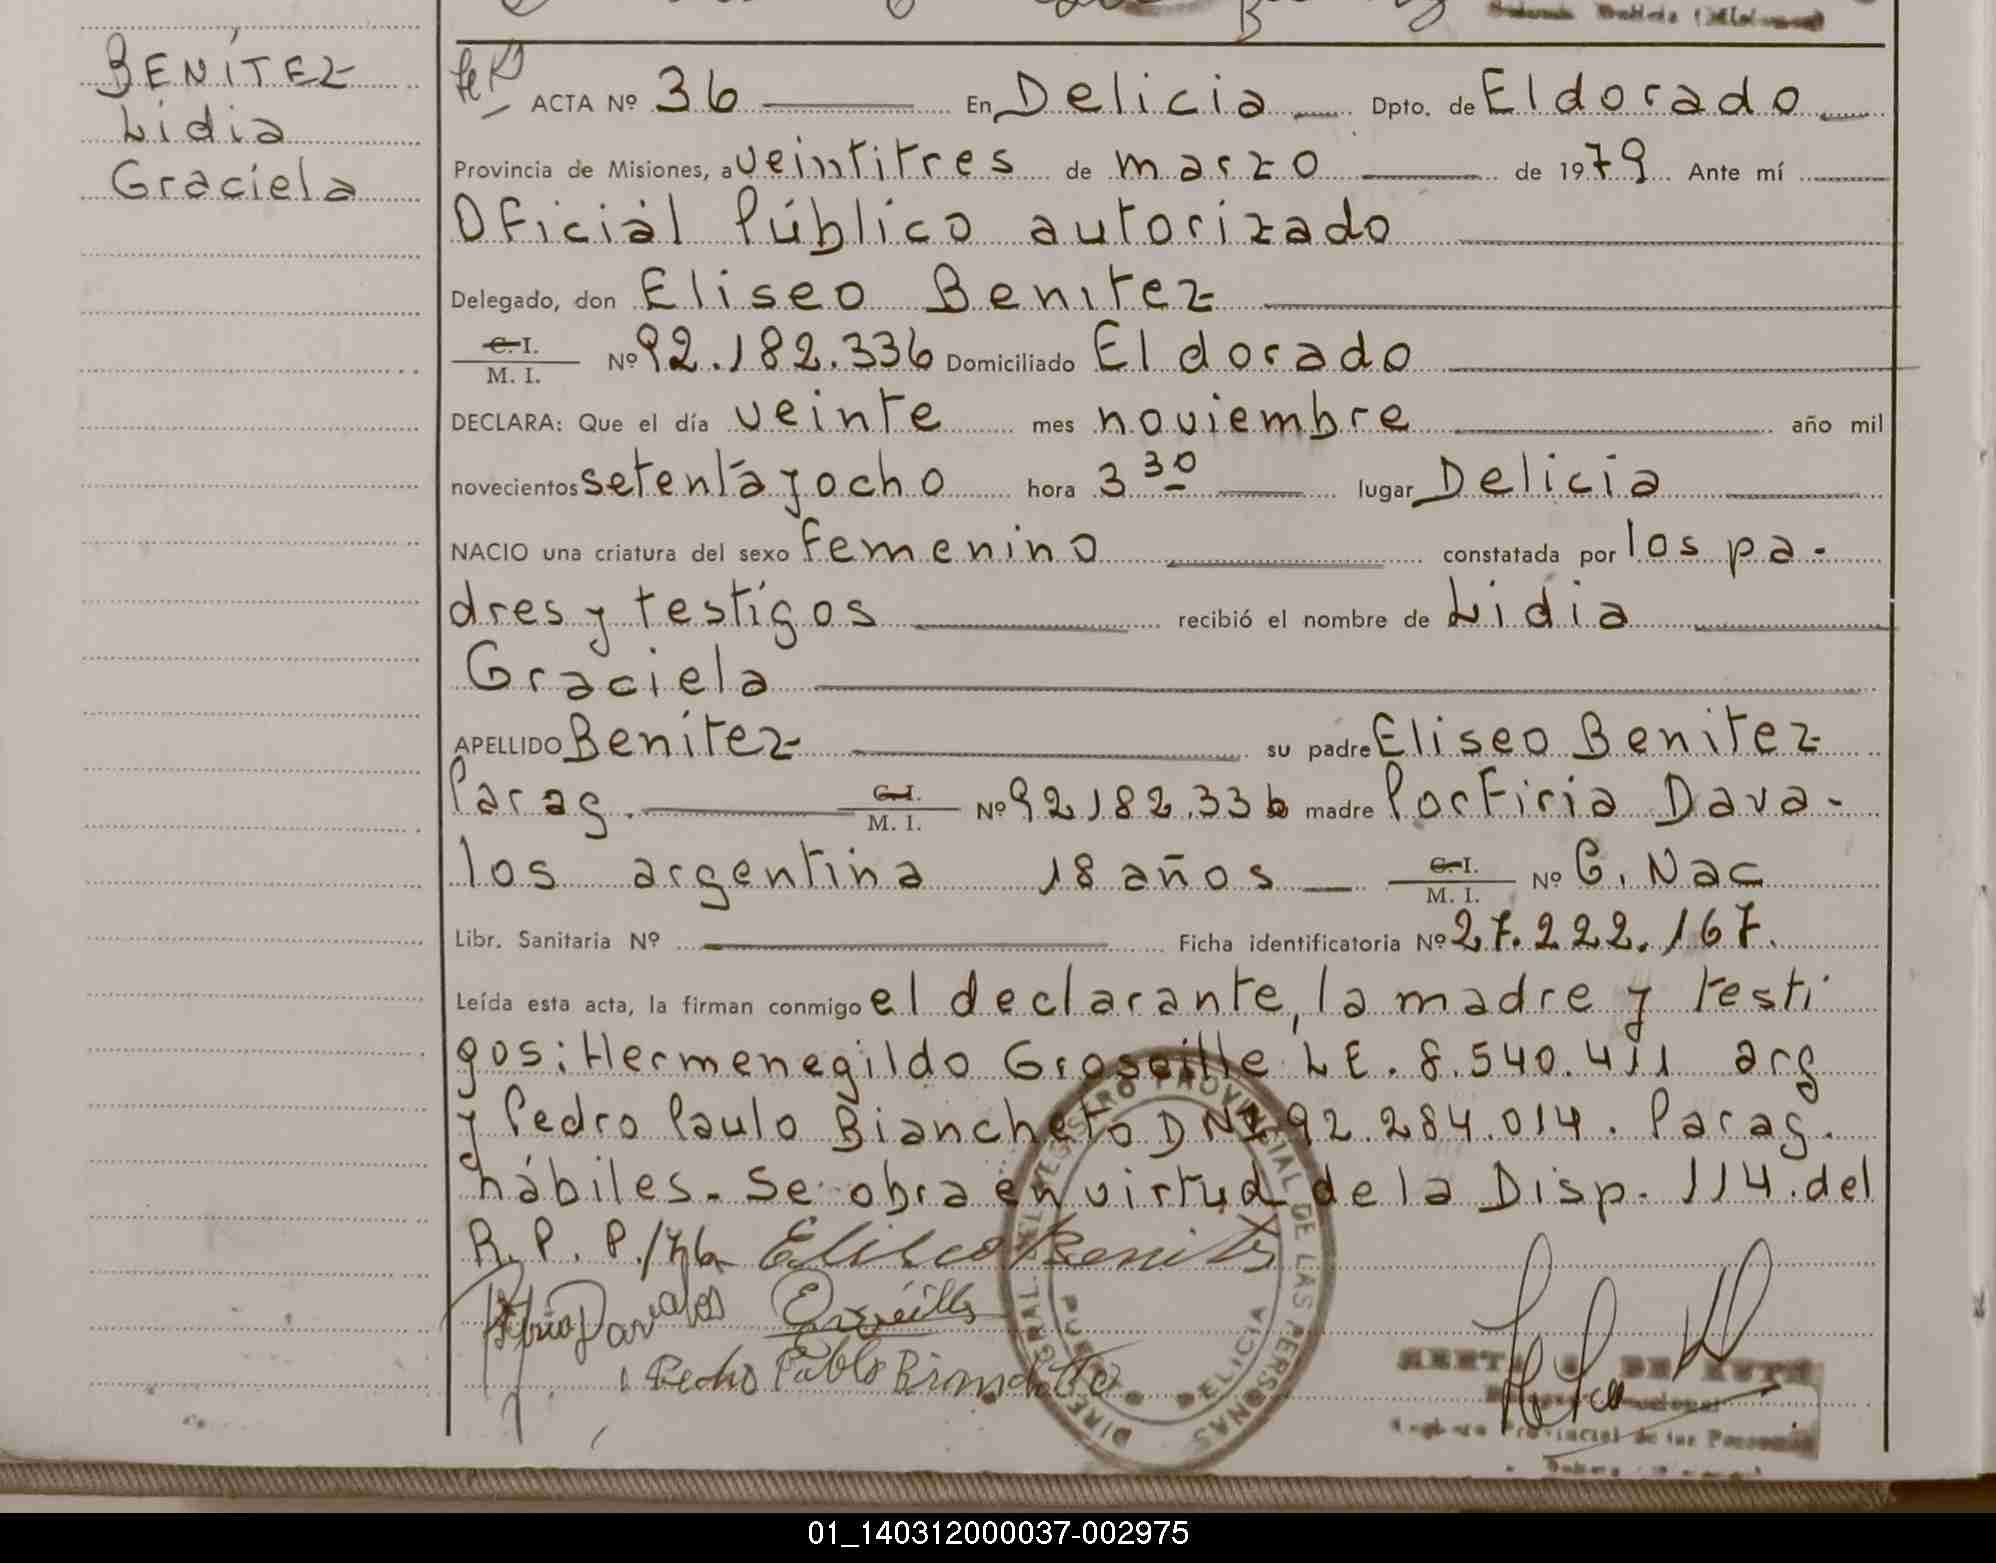 BENÍTEZ
Lidia
Graciela
ACTA Nº 36 En Delicia Dpto. de Eldorado
Provincia de Misiones, a veintitres de marzo de 1979 Ante mí
Oficial Público autorizado
Delegado, don Eliseo Benitez
C. I. / M. I. Nº 92.182.336 Domiciliado Eldorado
DECLARA: Que el día veinte mes noviembre año mil
novecientos setenta y ocho hora 3 30 lugar Delicia
NACIO una criatura del sexo femenino constatada por los pa-
dres y testigos recibió el nombre de Lidia
Graciela
APELLIDO Benítez su padre Eliseo Benitez
Parag. C. I. / M. I. Nº 92.182.336 madre Porfiria Dava-
los argentina 18 años C. I. / M. I. Nº C. Nac
Libr. Sanitaria Nº Ficha identificatoria Nº 27.222.167.
Leída esta acta, la firman conmigo el declarante, la madre y testi
gos: Hermenegildo LE. 8.540.411 arg
y Pedro Paulo Biancheto DNI 92.284.014. Parag.
hábiles. Se obra en virtud de la Disp. 114. del
R. P. P./76 Eliseo Benitez
Davalos
Pedro Pablo
DIRECCION GRAL. DEL REGISTRO PROVINCIAL DE LAS PERSONAS
DELICIA
Registro Provincial de las Personas
01_140312000037-002975